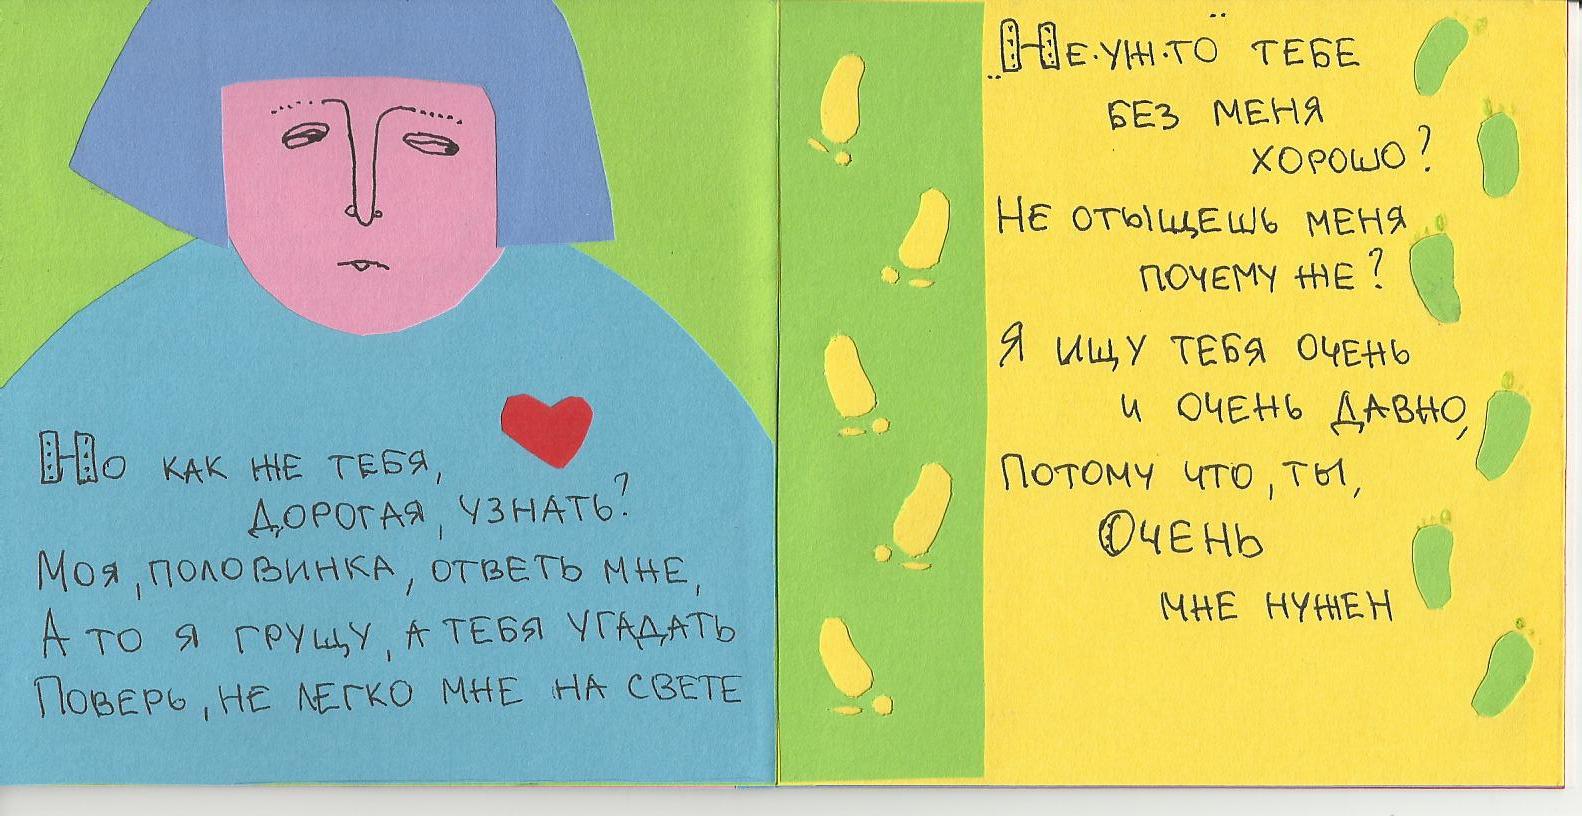 Но как же тебя,
дорогая, узнать?
Моя, половинка, ответь мне,
А то я грущу, а тебя угадать
Поверь, не легко мне на свете
"Не·уж·то" тебе
без меня
хорошо?
Не отыщешь меня
почему же?
Я ищу тебя очень
и очень давно,
Потому что, ты,
Очень
мне нужен